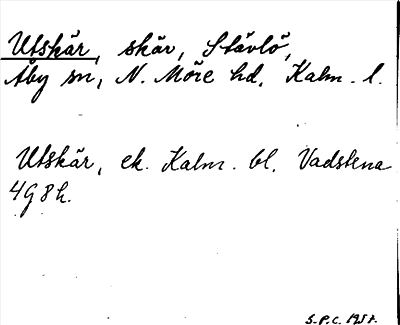 Utskär, skär, Stävlö,
Åby sn, N. Möre hd, Kalm. l.
Utskär, ek. Kalm. bl. Vadstena
4g8h.
S.P.C. 1957.